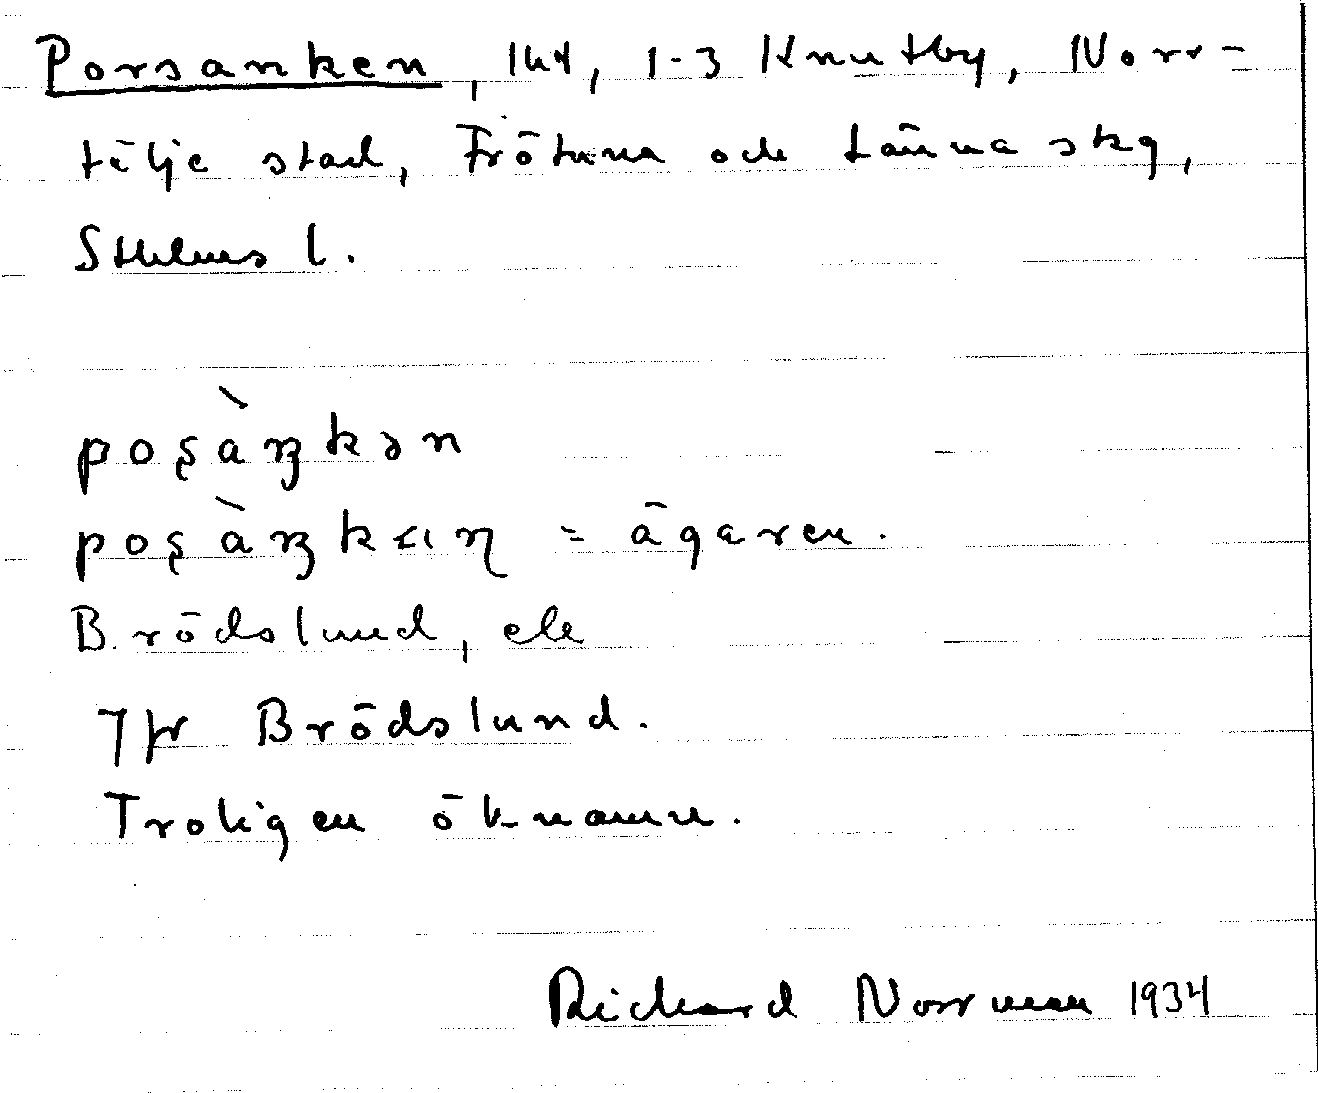 Porsanken, lht, 1-3 Knutby, Norr-
tälje stad, Frötuna och Länna skg,
Sthlms l.
poʂàŋkən
poʂàŋkaɳ = ägaren.
Brödslund, ele
Jfr Brödslund.
Troligen öknamn.
Richard Norrman 1934